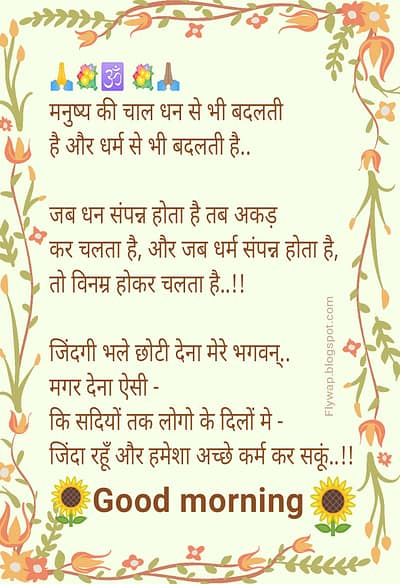 🙏💐🕉💐🙏🏽
मनुष्य की चाल धन से भी बदलती
है और धर्म से भी बदलती है..
जब धन संपन्न होता है तब अकड़
कर चलता है, और जब धर्म संपन्न होता है,
तो विनम्र होकर चलता है..!!
जिंदगी भले छोटी देना मेरे भगवन्..
मगर देना ऐसी -
कि सदियों तक लोगो के दिलों मे -
जिंदा रहूँ और हमेशा अच्छे कर्म कर सकूं..!!
🌻Good morning🌻
Flywap.blogspot.com